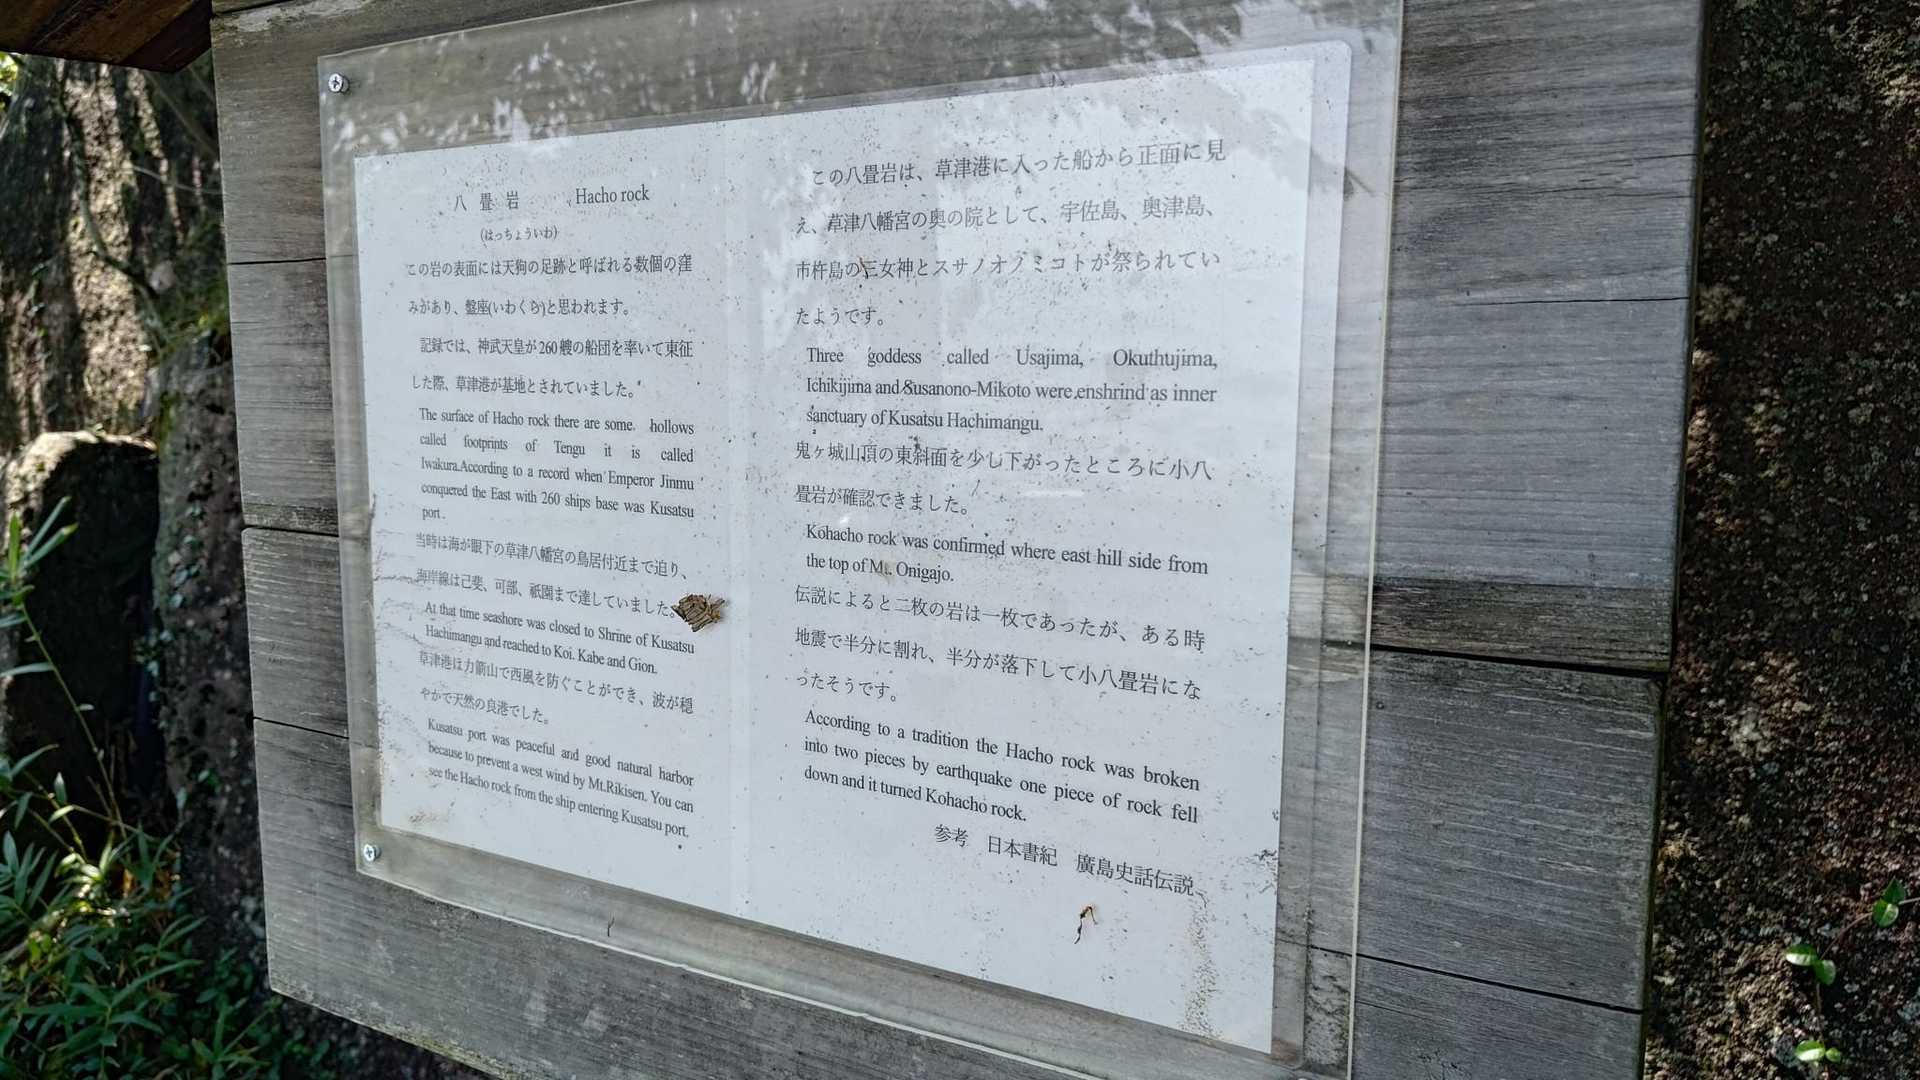 八畳岩 Hacho rock
(はっちょういわ)
この岩の表面には天狗の足跡と呼ばれる数個の窪
みがあり、盤座(いわくら)と思われます。
記録では、神武天皇が260艘の船団を率いて東征
した際、草津港が基地とされていました。
The surface of Hacho rock there are some hollows
called footprints of Tengu it is called
Iwakura.According to a record when Emperor Jinmu
conquered the East with 260 ships base was Kusatsu
port.
当時は海が眼下の草津八幡宮の鳥居付近まで迫り、
海岸線は己斐、可部、祇園まで達していました。
At that time seashore was closed to Shrine of Kusatsu
Hachimangu and reached to Koi. Kabe and Gion.
草津港は力箭山で西風を防ぐことができ、波が穏
やかで天然の良港でした。
Kusatsu port was peaceful and good natural harbor
because to prevent a west wind by Mt.Rikisen. You can
see the Hacho rock from the ship entering Kusatsu port.
この八畳岩は、草津港に入った船から正面に見
え、草津八幡宮の奥の院として、宇佐島、奥津島、
市杵島の三女神とスサノオノミコトが祭られてい
たようです。
Three goddess called Usajima, Okuthujima,
Ichikijima and Susanono-Mikoto were enshrind as inner
sanctuary of Kusatsu Hachimangu.
鬼ヶ城山頂の東斜面を少し下がったところに小八
畳岩が確認できました。
Kohacho rock was confirmed where east hill side from
the top of Mt. Onigajo.
伝説によると二枚の岩は一枚であったが、ある時
地震で半分に割れ、半分が落下して小八畳岩にな
ったそうです。
According to a tradition the Hacho rock was broken
into two pieces by earthquake one piece of rock fell
down and it turned Kohacho rock.
参考 日本書紀 廣島史話伝説